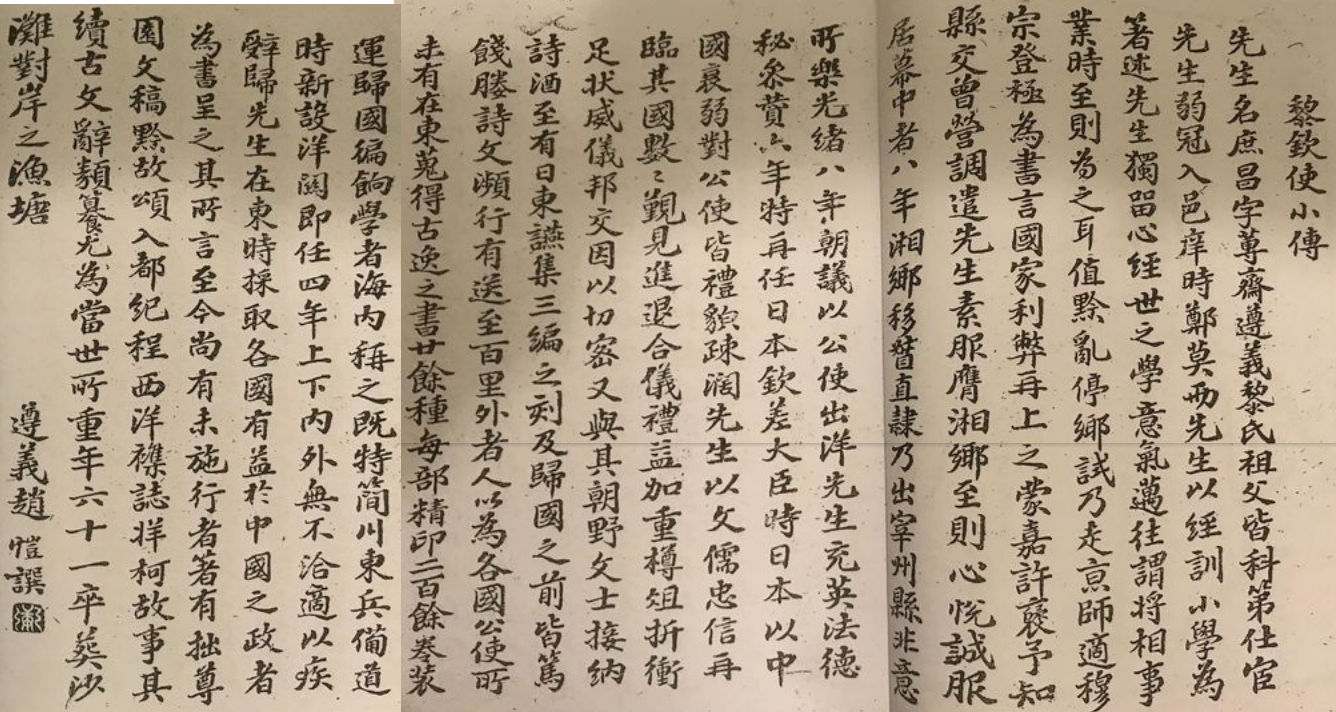 黎欽使小傳
先生名庶昌字蓴齋遵義黎氏祖父皆科第仕宦
先生弱冠入邑庠時鄭莫兩先生以經訓小學為
著述先生獨留心經世之學意氣邁往謂將相事
業時至則為之耳值黔亂停鄉試乃走京師適穆
宗登極為書言國家利弊再上之蒙嘉許褒予知
縣交曾營調遣先生素服膺湘鄉至則心悅誠服
居幕中者八年湘鄉移督直隸乃出宰州縣非意
所樂光緒八年朝議以公使出洋先生充英法德
秘參贊六年特再任日本欽差大臣時日本以中
國衰弱對公使皆禮貌疎濶先生以文儒忠信再
臨其國數〻覲見進退合儀禮益加重樽俎折衝
足狀威儀邦交因以切密又與其朝野文士接納
詩酒至有日東讌集三編之刻及歸國之前皆篤
餞賸詩文瀕行有送至百里外者人以為各國公使所
未有在東蒐得古逸之書廿餘種每部精印二百餘卷裝
運歸國徧餉學者海內稱之既特簡川東兵備道
時新設洋關即任四年上下內外無不洽適以疾
辭歸先生在東時採取各國有益於中國之政者
為書呈之其所言至今尚有未施行者著有拙尊
園文稿黔故頌入都紀程西洋襍誌牂柯故事其
續古文辭類纂尤為當世所重年六十一卒葬沙
灘對岸之漁塘
遵義趙愷譔